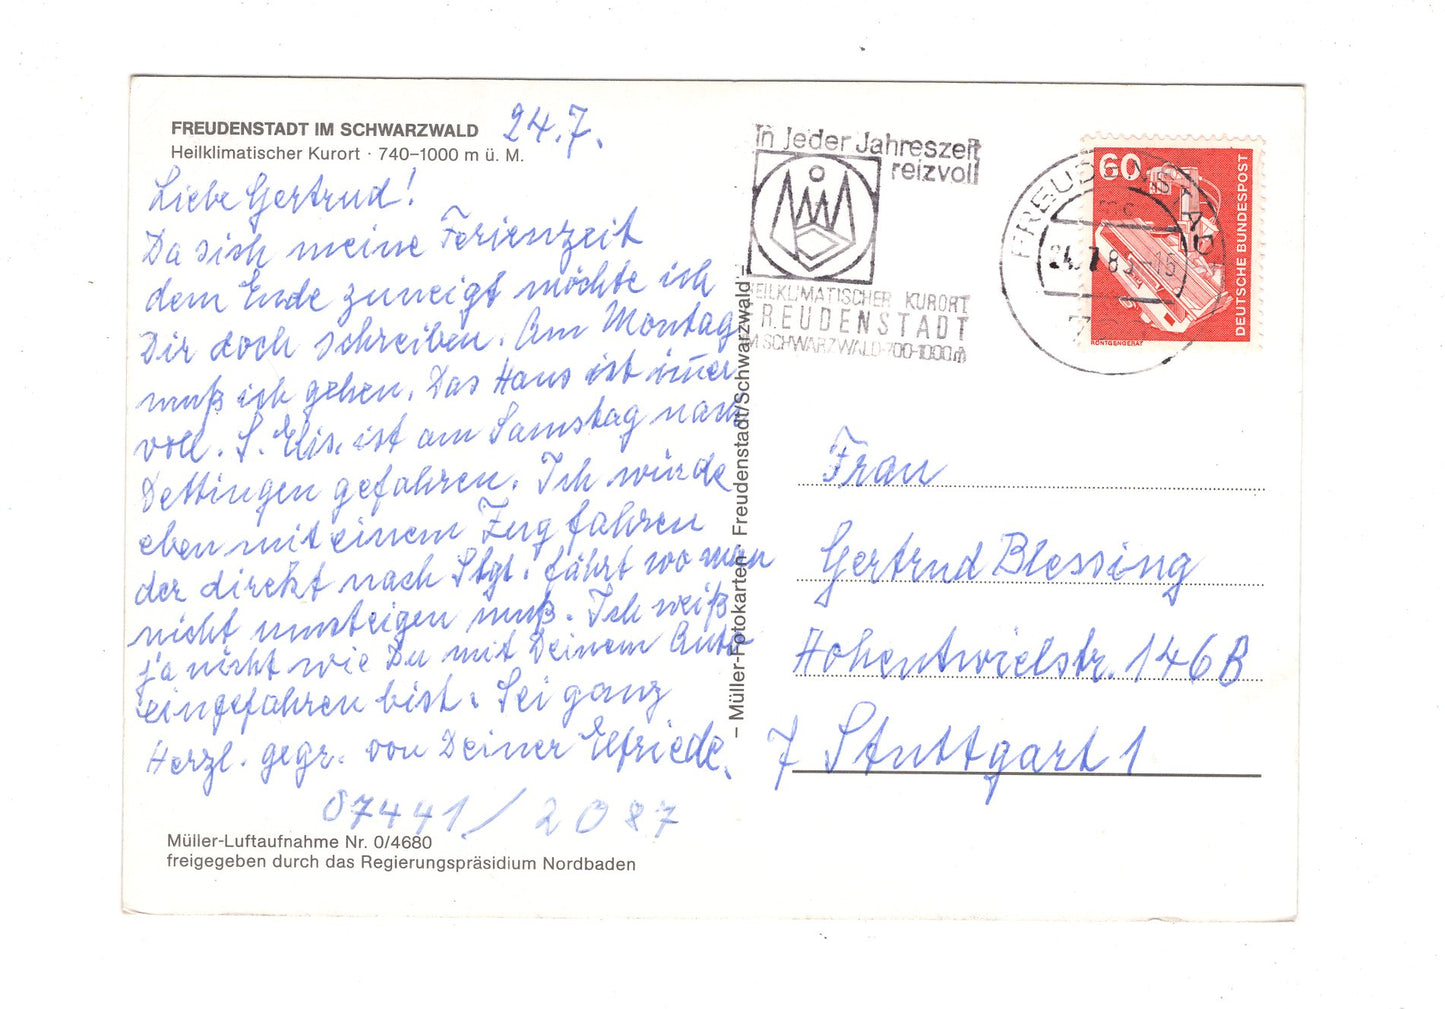 FREUDENSTADT IM SCHWARZWALD
Heilklimatischer Kurort · 740–1000 m ü. M.
24.7.
Liebe Gertrud!
Da sich meine Ferienzeit
dem Ende zuneigt möchte ich
Dir doch schreiben. Am Montag
muß ich gehen. Das Haus ist immer
voll. S. Elis. ist am Samstag nach
Dettingen gefahren. Ich würde
eben mit einem Zug fahren
der direkt nach Stgt. fährt wo man
nicht umsteigen muß. Ich weiß
ja nicht wie Du mit Deinem Auto
eingefahren bist. Sei ganz
Herzl. gegr. von Deiner Elfriede.
07441/2087
Müller-Luftaufnahme Nr. 0/4680
freigegeben durch das Regierungspräsidium Nordbaden
– Müller-Fotokarten · Freudenstadt/Schwarzwald –
In jeder Jahreszeit
reizvoll
HEILKLIMATISCHER KURORT
FREUDENSTADT
IM SCHWARZWALD·700-1000m
FREUDENSTADT
24.7.8 -15
60
DEUTSCHE BUNDESPOST
RÖNTGENGERÄT
Frau
Gertrud Blessing
Hohentwielstr. 146B
7 Stuttgart 1